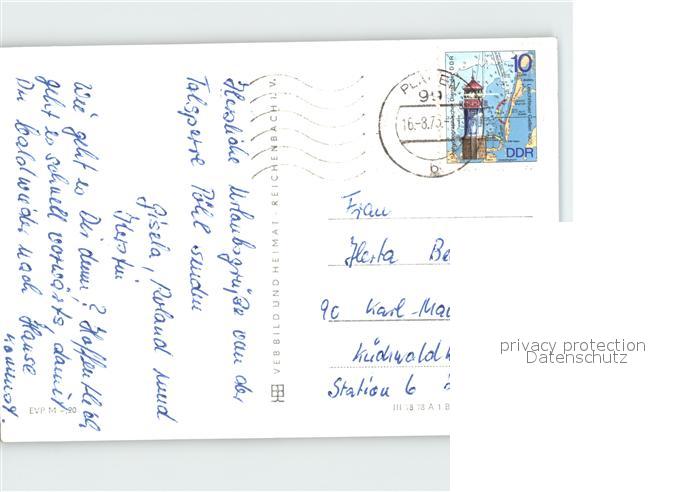 Herzliche Urlaubsgrüße von der
Talsperre Pöhl senden
Gisela, Roland und
Kerstin
Wie geht es Dir denn? Hoffentlich
geht es schnell vorwärts, damit
Du bald wieder nach Hause
kommst.
EVP M -,20
VEB BILD UND HEIMAT · REICHENBACH I. V.
PL
99
16.-8.75.-
b
10
DDR
Frau
Herta Be
90 Karl-Ma
Küchwald
Station 6
III 18 78 A 1 B
privacy protection
Datenschutz